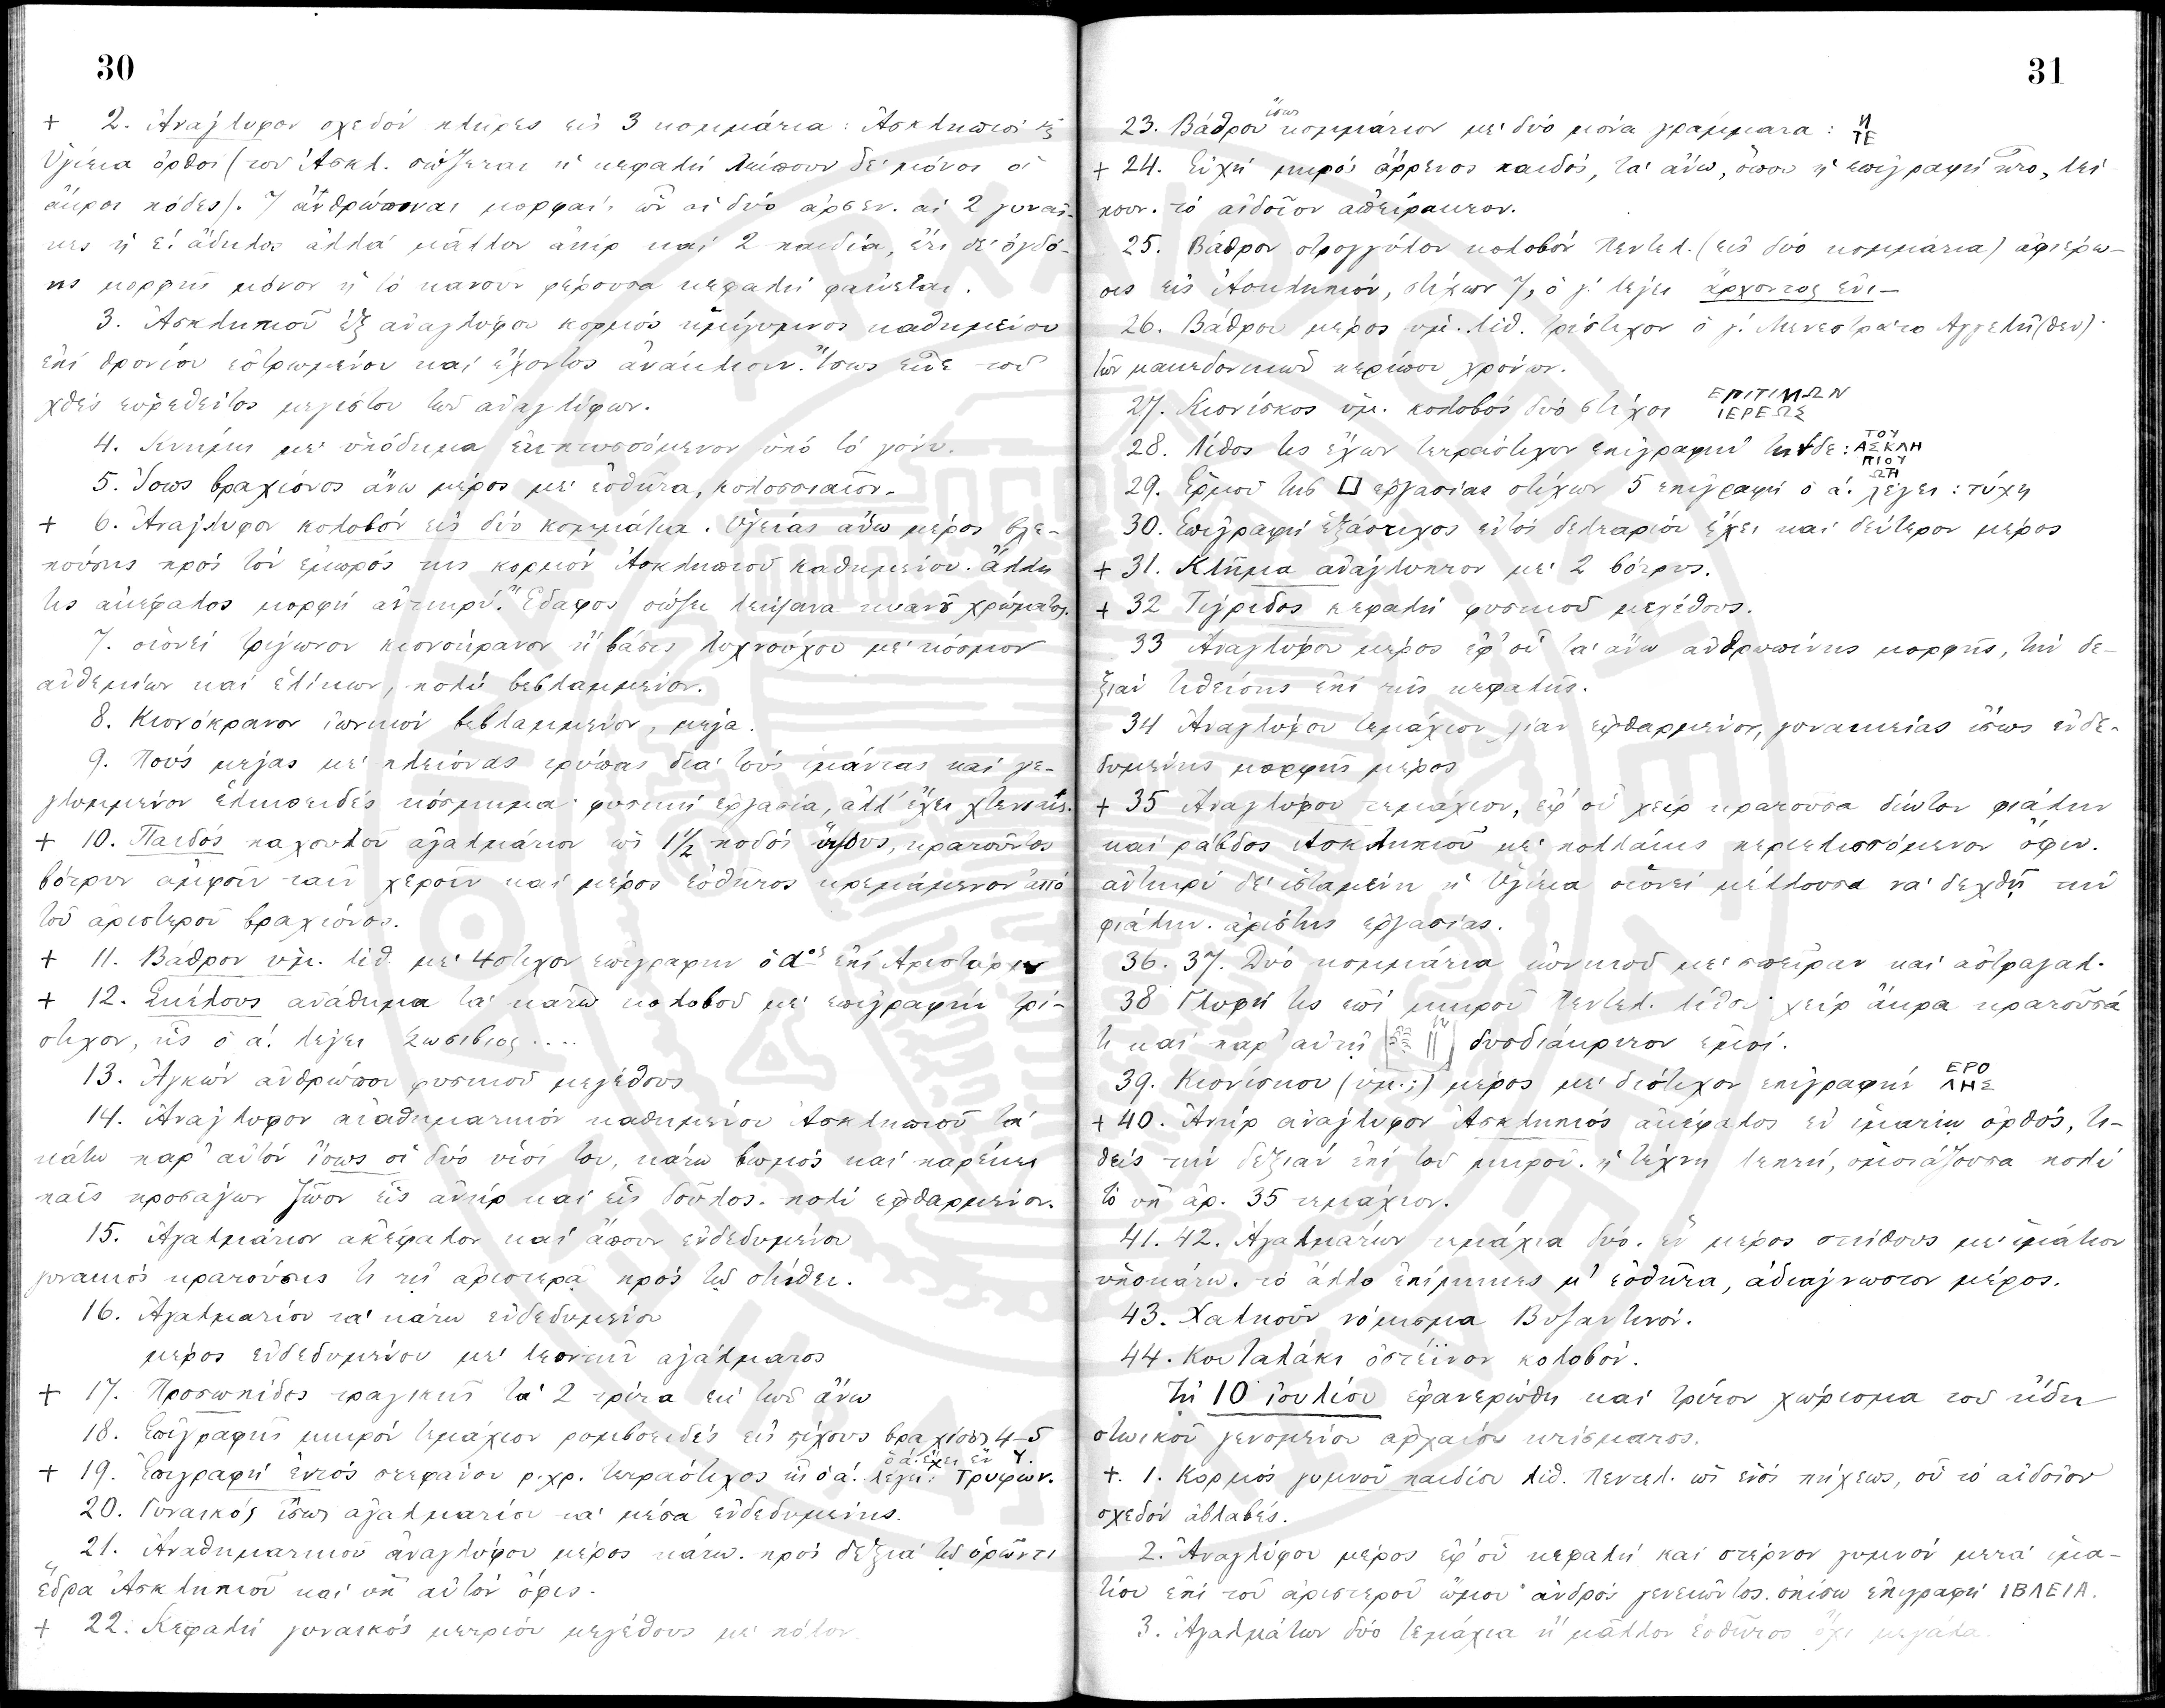 30
+ 2. Ἀνάγλυφον σχεδόν πλῆρες εἰς 3 κομμάτια: Ἀσκληπιοῦ καὶ
Ὑγίεια ὄρθιοι (τοῦ Ἀσκλ. σώζεται ἡ κεφαλή λείπουν δέ μόνοι οἱ
ἄκροι πόδες). 7 ἀνθρώπιναι μορφαί, ὧν αἱ δύο ἄρσεν. αἱ 2 γυναῖ-
κες ἡ ε! ἄδηλος ἀλλά μᾶλλον ἀνήρ καί 2 παιδία, ἔτι δέ ὀγδό-
ης μορφῆς μόνον ἡ τό κανοῦν φέρουσα κεφαλή φαίνεται.
3. Ἀσκληπιοῦ ἐξ ἀναγλύφου κορμός ἡμίγυμνος καθημένου
ἐπί θρονίου ἐστρωμένου καί ἔχοντος ἀνάκλισιν. Ἴσως εἶνε τοῦ
χθές εὑρεθέντος μεγίστου τῶν ἀναγλύφων.
4. Κνήμη μέ ὑπόδημα ἐκπτυσσόμενον ὑπό τό γόνυ.
5. Ἴσως βραχίονος ἄνω μέρος μέ ἐσθῆτα, κολοσσιαῖον.
+ 6. Ἀνάγλυφον κολοβόν εἰς δύο κομμάτια. Ὑγείας ἄνω μέρος βλε-
πούσης πρός τόν ἐμπρός της κορμόν Ἀσκληπιοῦ καθημένου. ἄλλη
τις ἀκέφαλος μορφή ἀντικρύ. Ἔδαφος σώζει λείψανα κυανοῦ χρώματος.
7. οἱονεί τρίγωνον κιονόκρανον ἤ βάσις λυχνούχου μέ κόσμον
ἀνθεμίων καί ἑλίκων, πολύ βεβλαμμένον.
8. Κιονόκρανον ἰωνικόν βεβλαμμένον, μέγα.
9. Πούς μέγας μέ πλείονας τρύπας διά τούς ἱμάντας καί γε-
γλυμμένον ἑλικοειδές κόσμημα· φυσική ἐργασία, ἀλλ' ἔχει
+ 10. Παιδός παχουλοῦ ἀγαλμάτιον ὡς 1½ ποδός ὕψους, κρατοῦντος
βότρυν ἀμφοῖν ταῖν χεροῖν καί μέρος ἐσθῆτος κρεμάμενον ἀπό
τοῦ ἀριστεροῦ βραχίονος.
+ 11. Βάθρον ὑμ. λίθ. μέ 4στιχον ἐπιγραφήν ὁ α<sup>ος</sup> ἐπί
+ 12. Σκέλους ἀνάθημα τά κάτω κολοβοῦ μέ ἐπιγραφήν τρί-
στιχον, ἧς ὁ α! λέγει Σωσιβιος ....
13. Ἀγκών ἀνθρώπου φυσικοῦ μεγέθους
14. Ἀνάγλυφον ἀναθηματικόν καθημένου Ἀσκληπιοῦ τά
κάτω παρ' αὐτόν ἴσως οἱ δύο υἱοί του, κάτω βωμός καί παρέκει
παῖς προσάγων ζῷον εἷς ἀνήρ καί εἷς δοῦλος. πολύ ἐφθαρμένον.
15. Ἀγαλμάτιον ἀκέφαλον καί ἄπουν ἐνδεδυμένου
γυναικός κρατούσης τι τῇ ἀριστερᾷ πρός τῷ στήθει.
16. Ἀγαλματίου τά κάτω ἐνδεδυμένου
μέρος ἐνδεδυμένου μέ λεοντῆν ἀγάλματος
+ 17. Προσωπίδος τραγικῆς τά 2 τρίτα ἐκ τῶν ἄνω
18. Ἐπιγραφῆς μικρόν τεμάχιον ρομβοειδές εἰς στίχους βραχίονα 4–5
ὁ ά. ἔχει ἕν Υ.
+ 19. Ἐπιγραφή ἐντός στεφάνου ρ. χρ. τετράστιχος ἧς ὁ α! λέγει: Τρυφων.
20. Γυναικός ἴσως ἀγαλματίου τά μέσα ἐνδεδυμένης.
21. Ἀναθηματικοῦ ἀναγλύφου μέρος κάτω. πρός δεξιά τῷ ὁρῶντι
ἕδρα Ἀσκληπιοῦ καί ὑπ' αὐτόν ὄφις.
+ 22. Κεφαλή γυναικός μετρίου μεγέθους μέ πόλον.
31
23. Βάθρου ἴσως κομμάτιον μέ δύο μόνα γράμματα: Η
ΤΕ
+ 24. Εὐχή μηρός ἄρρενος παιδός, τά ἄνω, ὅπου ἡ ἐπιγραφή ἦτο, λεί-
πουν. τό αἰδοῖον ἀπείρακτον.
25. Βάθρον στρογγύλον κολοβόν Πεντελ. (εἰς δύο κομμάτια) ἀφιέρω-
σις εἰς Ἀσκληπιόν, στίχων 7, ὁ γ! λέγει ἄρχοντος ἐπι–
26. Βάθρου μέρος ὑμ. λίθ. τρίστιχον ὁ γ! Μενεστρατο Αγγελῆ(θεν)·
τῶν μακεδονικῶν περίπου χρόνων.
27. Κιονίσκος ὑμ. κολοβός δύο στίχοι ΕΠΙΤΙΜΩΝ
ΙΕΡΕΩΣ
28. Λίθος τις ἔχων τετράστιχον ἐπιγραφήν τήνδε: ΤΟΥ
ΑΣΚΛΗ
ΠΙΟΥ
ΩΠ
29. Ἑρμοῦ τῆς □ ἐργασίας στίχων 5 ἐπιγραφή ὁ ά. λέγει: τύχη
30. Ἐπιγραφή ἑξάστιχος ἐντός δελταρίου ἔχει καί δεύτερον μέρος
+ 31. Κλῆμα ἀνάγλυπτον μέ 2 βότρυς.
+ 32 Τίγριδος κεφαλή φυσικοῦ μεγέθους.
33 Ἀναγλύφου μέρος ἐφ' οὗ τά ἄνω ἀνθρωπίνης μορφῆς, τήν δε-
ξιάν τιθείσης ἐπί τῆς κεφαλῆς.
34 Ἀναγλύφου τεμάχιον λίαν ἐφθαρμένον, γυναικείας ἴσως ἐνδε-
δυμένης μορφῆς μέρος
+ 35 Ἀναγλύφου τεμάχιον, ἐφ' οὗ χείρ κρατοῦσα δίωτον φιάλην
καί ράβδος Ἀσκληπιοῦ μέ πολλάκις περιελισσόμενον ὄφιν.
ἀντικρύ δέ ἱσταμένη ἡ Ὑγίεια οἱονεί μέλλουσα νά δεχθῇ τήν
φιάλην. ἀρίστης ἐργασίας.
36. 37. Δύο κομμάτια ἰωνικοῦ μέ σπεῖραν καί ἀστραγαλ.
38 Γλυφή τις ἐπί μικροῦ Πεντελ. λίθου· χείρ ἄκρα κρατοῦσά
τι καί παρ' αὐτῇ δυσδιάκριτον ἐμοί.
39. Κιονίσκου (ὑμ.;) μέρος μέ δίστιχον ἐπιγραφήν ΕΡΟ
ΛΗΣ
+ 40. Ἀνήρ ἀνάγλυφον Ἀσκληπιός ἀκέφαλος ἐν ἱματίῳ ὀρθός, τι-
θείς τήν δεξιάν ἐπί τοῦ μηροῦ. ἡ τέχνη λεπτή, ὁμοιάζουσα πολύ
τό ὑπ' ἀρ. 35 τεμάχιον.
41. 42. Ἀγαλμάτων τεμάχια δύο. ἕν μέρος στήθους μέ ἱμάτιον
ὑποκάτω. τό ἄλλο ἐπίμηκες μ' ἐσθῆτα, ἀδιάγνωστον μέρος.
43. Χαλκοῦν νόμισμα Βυζαντινόν.
44. Κουταλάκι ὀστέϊνον κολοβόν.
Τῇ 10 Ἰουλίου ἐφανερώθη καί τρίτον χώρισμα τοῦ ἤδη
στωικοῦ γενομένου ἀρχαίου κτίσματος.
+. 1. Κορμός γυμνοῦ παιδίου λίθ. Πεντελ. ὡς ἑνός πήχεως, οὗ τό αἰδοῖον
σχεδόν ἀβλαβές.
2. Ἀναγλύφου μέρος ἐφ' οὗ κεφαλή καί στέρνον γυμνόν μετά ἱμα-
τίου ἐπί τοῦ ἀριστεροῦ ὤμου ἀνδρός γενειῶντος. ὀπίσω ἐπιγραφή ΙΒΛΕΙΑ.
3. Ἀγαλμάτων δύο τεμάχια ἤ μᾶλλον ἐσθῆτος ὄχι μεγάλα